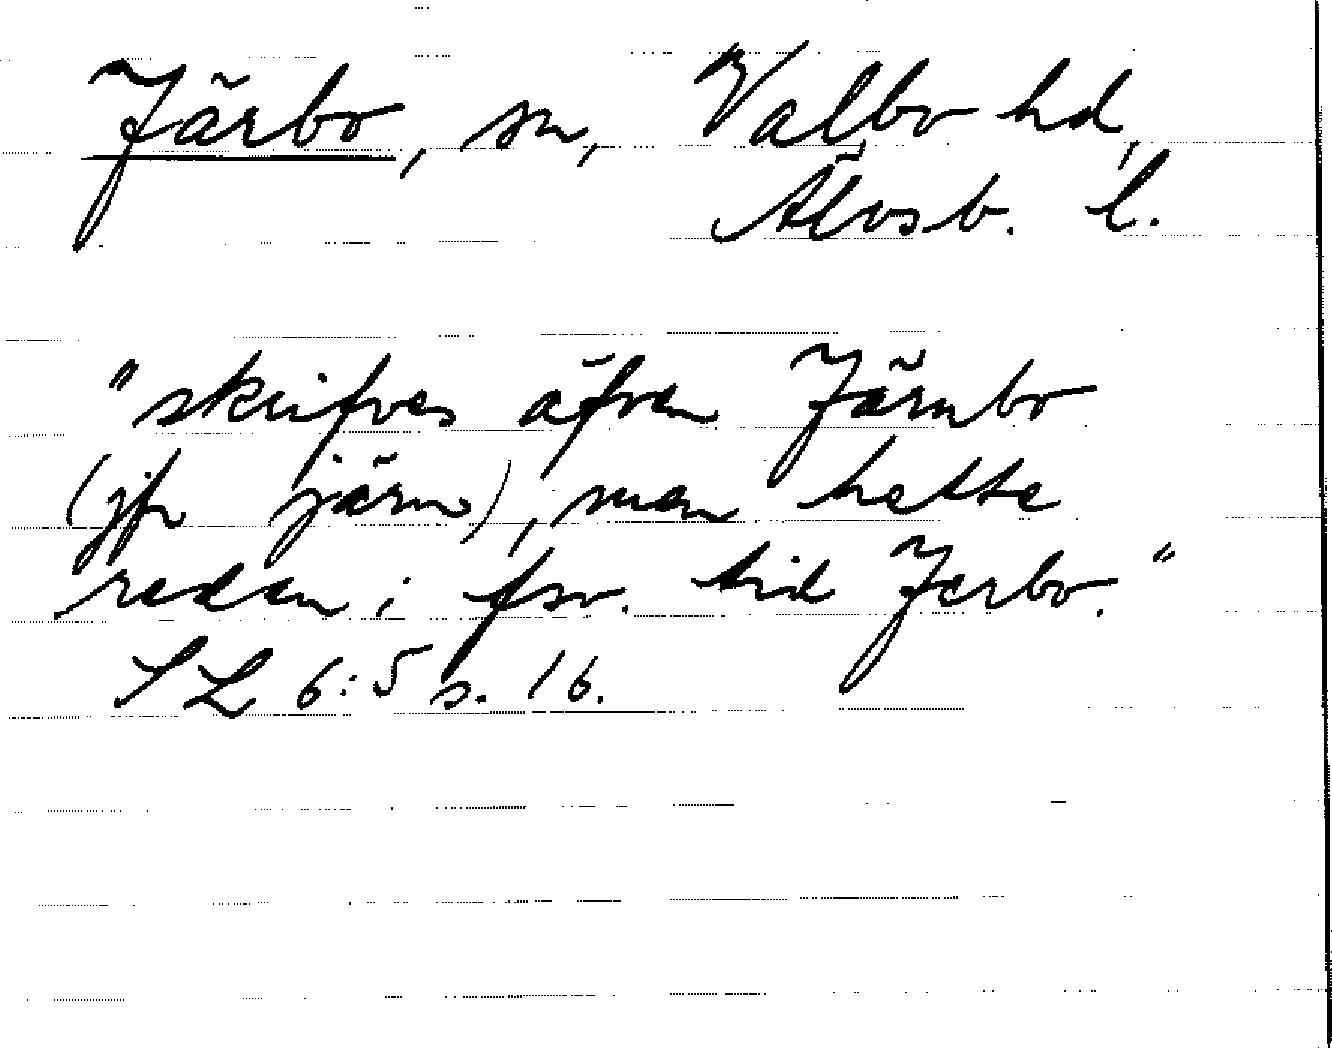 Järbo, sn, Valbo hd,
Älvsb. l.
"skrifves äfven Järnbo
(jfr järn), men hette
redan i fsv. tid Jerbo."
SL 6:5 s. 16.